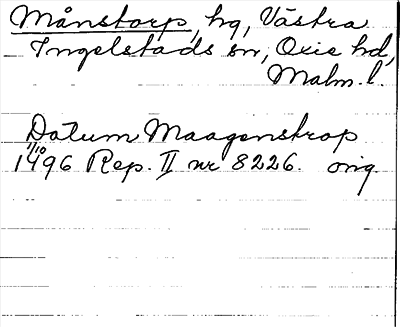 Månstorp, hg, Västra
Ingelstads sn, Oxie hd,
Malm. l.
Datum Maagenstrop
1/10
1496 Rep. II nr 8226. orig.